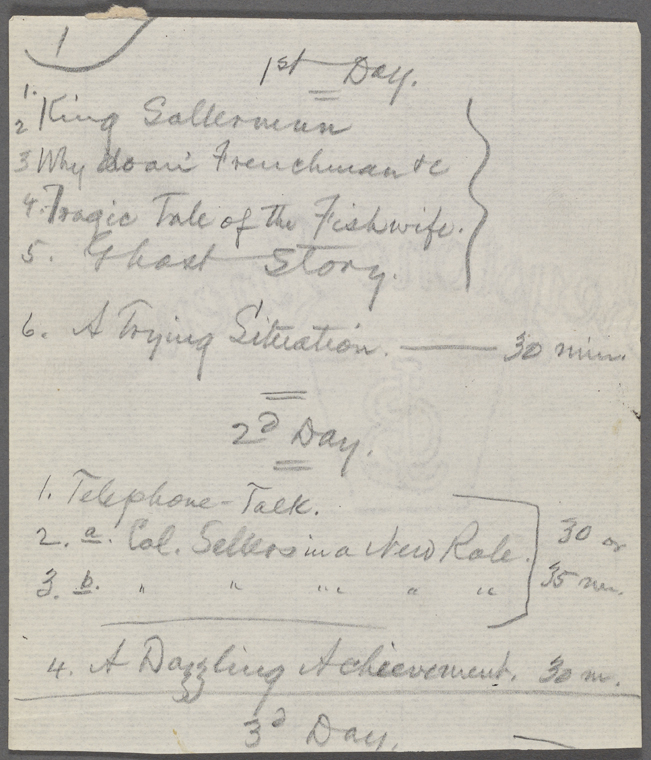 1
1st Day.
1.
2 King Sollermunn
3 Why do an Frenchman &c
4. Tragic Tale of the Fishwife.
5. Ghost Story.
6. A Trying Situation. — 30 min.
2d Day.
1. Telephone-Talk.
2. a. Col. Sellers in a New Role. 30 or
3. b. " " " " " 35 m.
4. A Dazzling Achievement. 30 m.
3d Day.